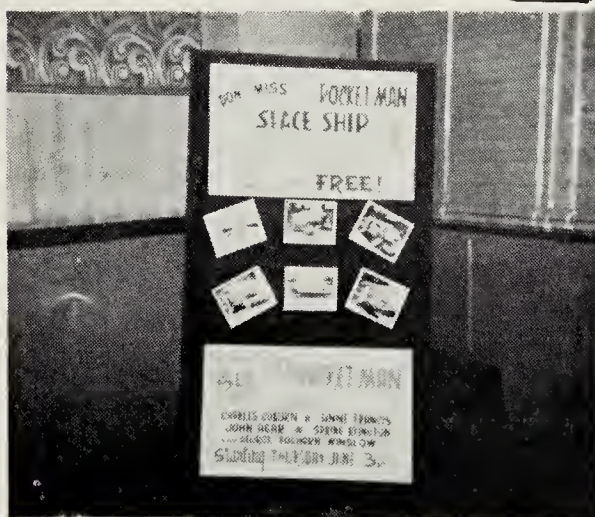 DON MISS ROCKET MAN
SPACE SHIP
FREE!
ROCKET MAN
CHARLES COBURN & ANNE FRANCIS
JOHN AGAR & SPRING BYINGTON
GEORGE FOGHORN WINSLOW
Starting THURSDAY JUNE 3